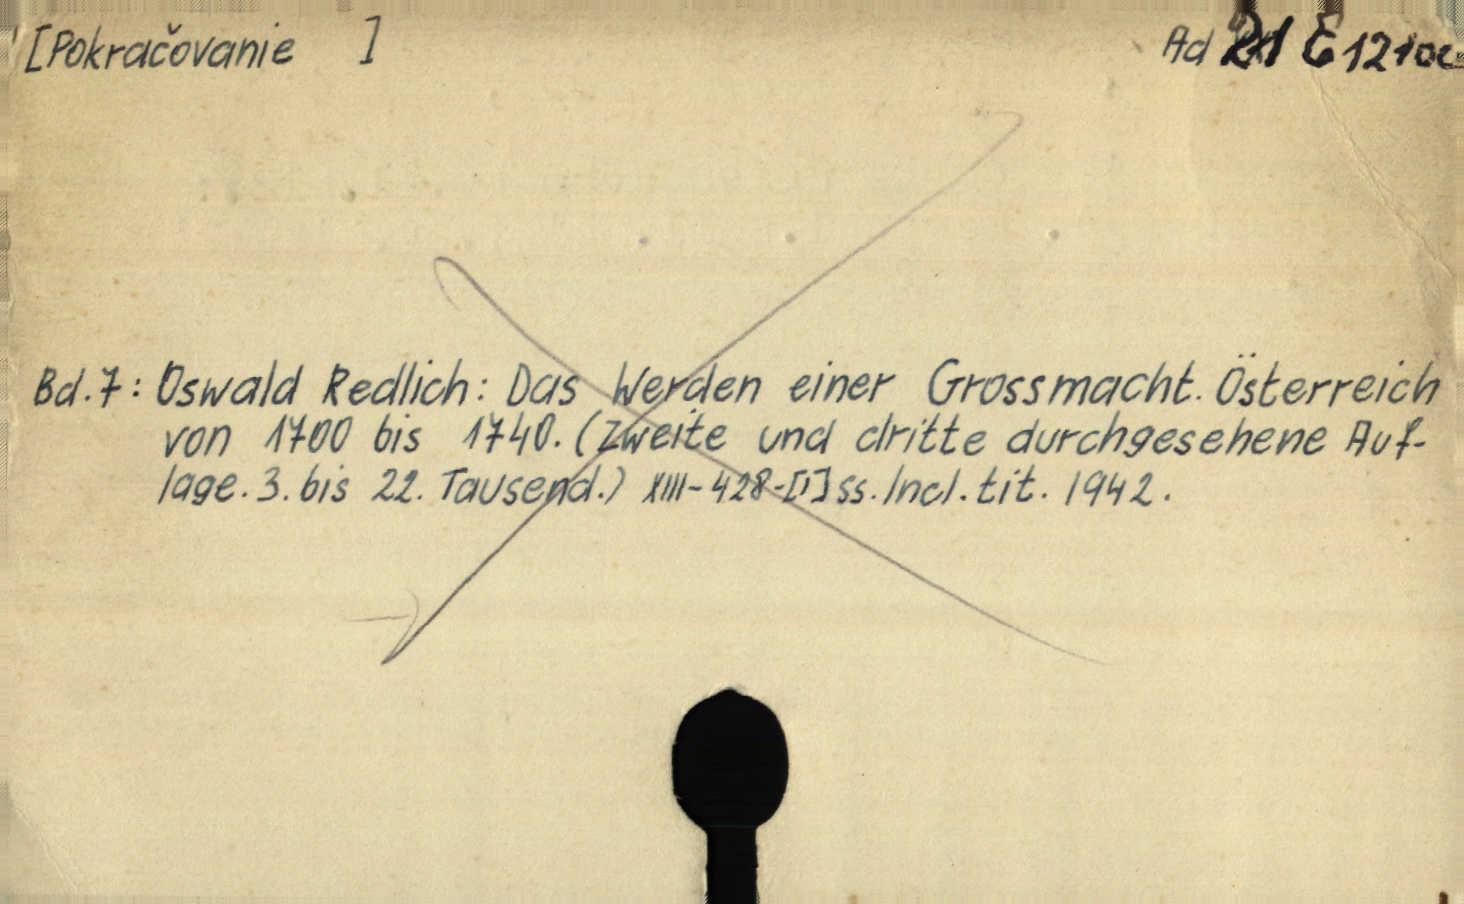 [Pokračovanie ] Ad 21 E 1210c
Bd.7: Oswald Redlich: Das Werden einer Grossmacht. Österreich
von 1700 bis 1740. (Zweite und dritte durchgesehene Auf-
lage. 3. bis 22. Tausend.) XIII-428-[1] ss. Incl. tit. 1942.